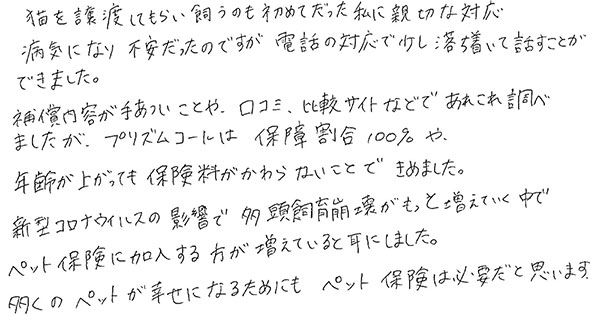 猫を譲渡してもらい飼うのも初めてだった私に親切な対応
病気になり不安だったのですが電話の対応で少し落ち着いて話すことが
できました。
補償内容が手あついことや、口コミ、比較サイトなどであれこれ調べ
ましたが、プリズムコールは保障割合100%や、
年齢が上がっても保険料がかわらないことできめました。
新型コロナウイルスの影響で多頭飼育崩壊がもっと増えていく中で
ペット保険に加入する方が増えていると耳にしました。
多くのペットが幸せになるためにもペット保険は必要だと思います